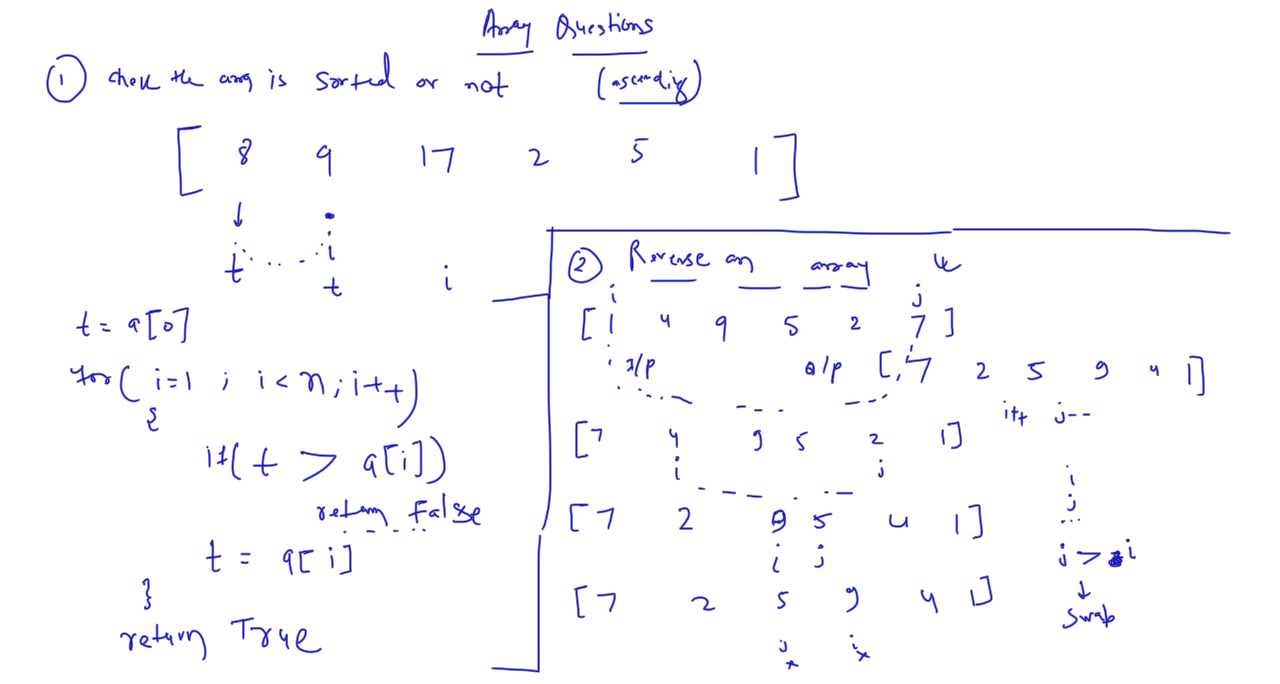 Array Questions
① check the array is Sorted or not (ascending)
[ 8 9 17 2 5 1 ]
t i
t i
t = a[0]
for ( i=1 ; i < n ; i++ )
{
if( t > a[i])
return False
t = a[i]
}
return True
② Reverse an array
i j
[ 1 4 9 5 2 7 ]
I/p O/p [ 7 2 5 9 4 1 ]
i++ j--
[ 7 4 9 5 2 1 ]
i j
[ 7 2 9 5 4 1 ]
i j
[ 7 2 5 9 4 1 ]
j i
x x
i
j
j > i
↓
Swap